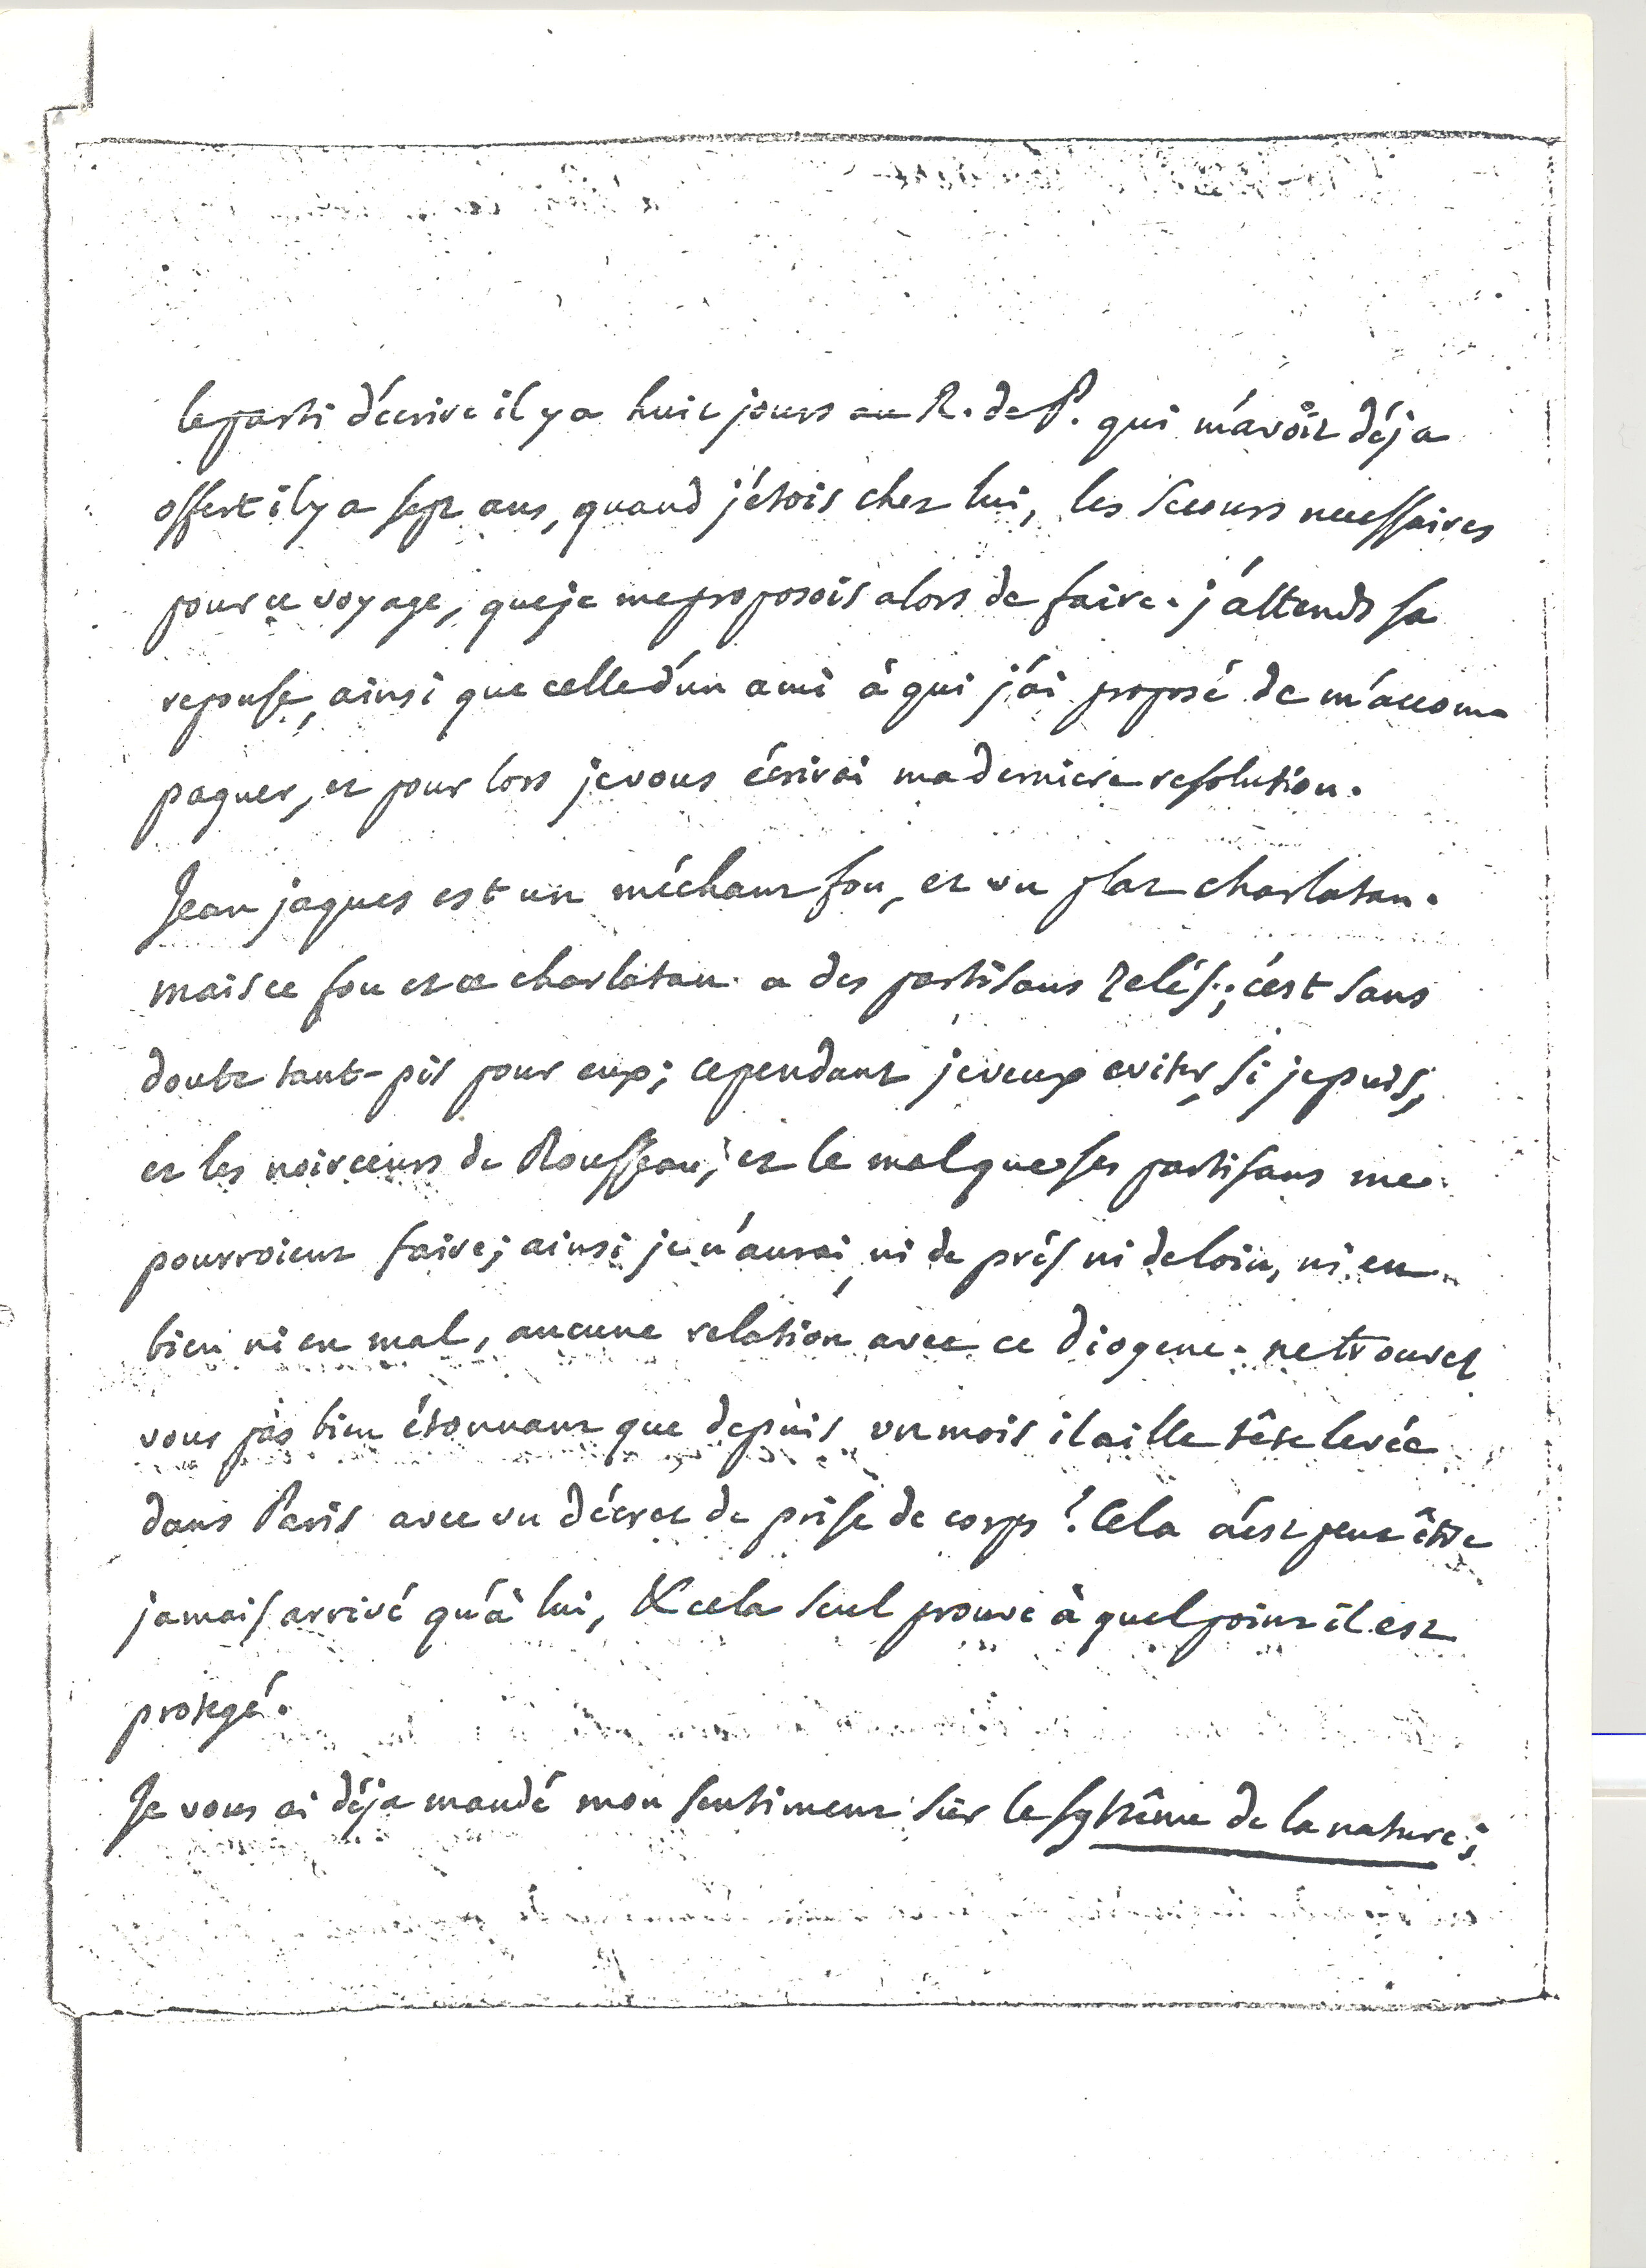 le parti d'écrire il y a huit jours au R. de P. qui m'avoit déja
offert il y a sept ans, quand j'étois chez lui, les secours necessaires
pour ce voyage, que je me proposois alors de faire. j'attends sa
reponse, ainsi que celle d'un ami à qui j'ai proposé de m'accom-
pagner, et pour lors je vous écrirai ma derniere resolution.
Jean jaques est un méchant fou, et un plat charlatan.
mais ce fou et ce charlatan a des partisans zelés; c'est sans
doute tant-pis pour eux; cependant je veux eviter, si je puis,
et les noirceurs de Rousseau, et le mal que ses partisans me
pourroient faire; ainsi je n'aurai, ni de près ni de loin, ni en
bien ni en mal, aucune relation avec ce diogene. ne trouvez
vous pas bien étonnant que depuis un mois il aille tête levée
dans Paris avec un décret de prise de corps? Cela n'est peut être
jamais arrivé qu'à lui, & cela seul prouve à quel point il est
protegé.
Je vous ai déja mandé mon sentiment sur le systême de la nature;